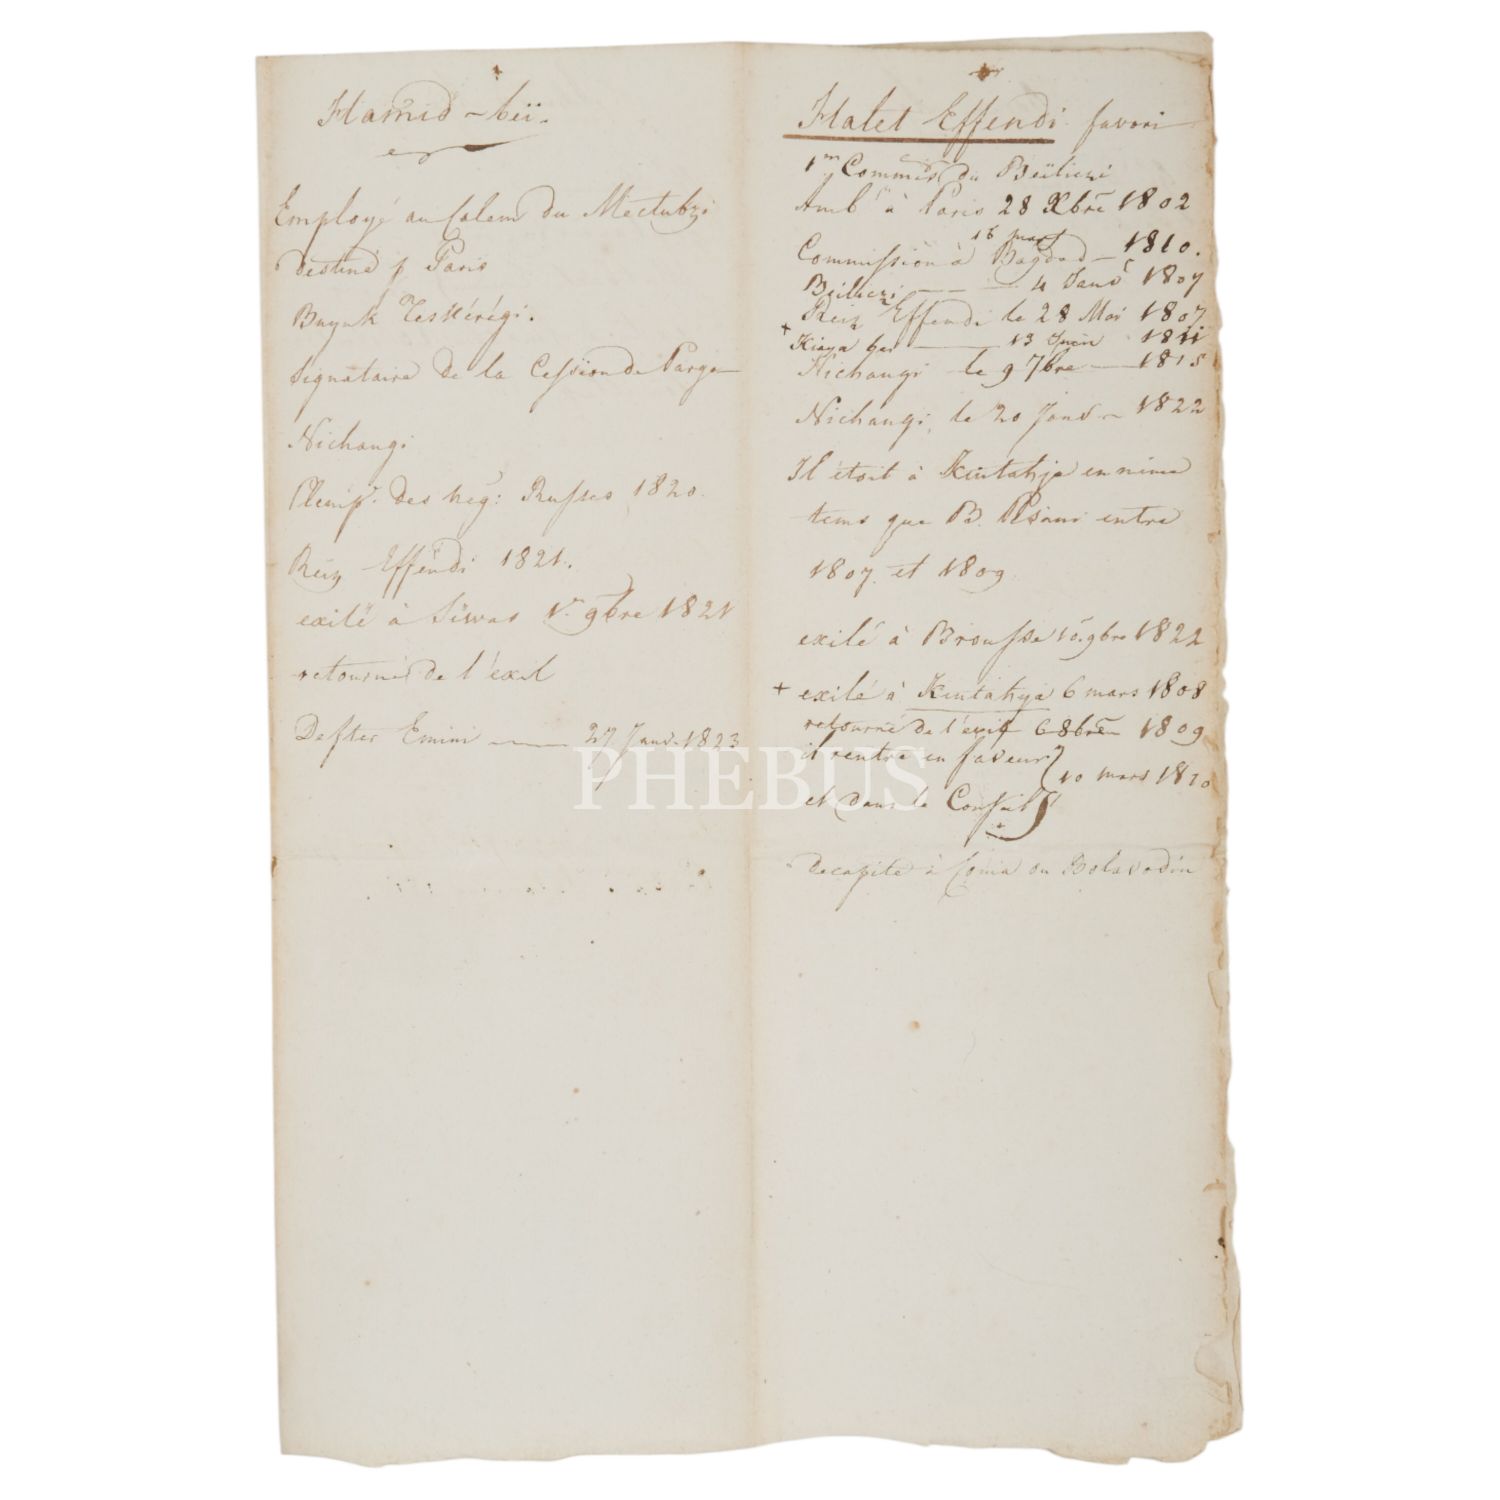 Hamid-beï.
Employé au Calem du Mectubzi
destiné p Paris
Buyuk Teskérégi.
Signataire de la Cession de Parga
Nichangi
Plenip.re des Neg: Russes 1820.
Reiz Effendi 1821.
exilé à Siwas 1.er 9bre 1821
retourné de l'exil
Defter Emini —— 27 Janv. 1823
Halet Effendi favori
1.er Commis du Beïliczi
Amb.r à Paris 28 Xbre 1802
16 mars
Commission à Bagdad — 1810.
Beïliczi —— 4 Janv 1807
Reiz Effendi le 28 Mai 1807
+ Kiaya bei —— 13 Juin 1811
Nichangi le 9 7bre — 1815
Nichangi, le 20 Janv — 1822
Il étoit à Kiutahja en même
tems que B. Pisani entre
1807. et 1809
exilé à Brousse 10. 9bre 1822
+ exilé à Kiutahya 6 mars 1808
retourné de l'exil 6 8bre 1809
il rentre en faveur } 10 mars 1810
et dans le Conseil
décapité à Conia ou Bolavodin
PHEBUS